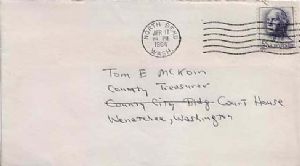 NORTH BEND
APR 11
PM
1964
WASH.
Tom E McKoin
County Treasurer
County City Bldg Court House
Wenatchee, Washington